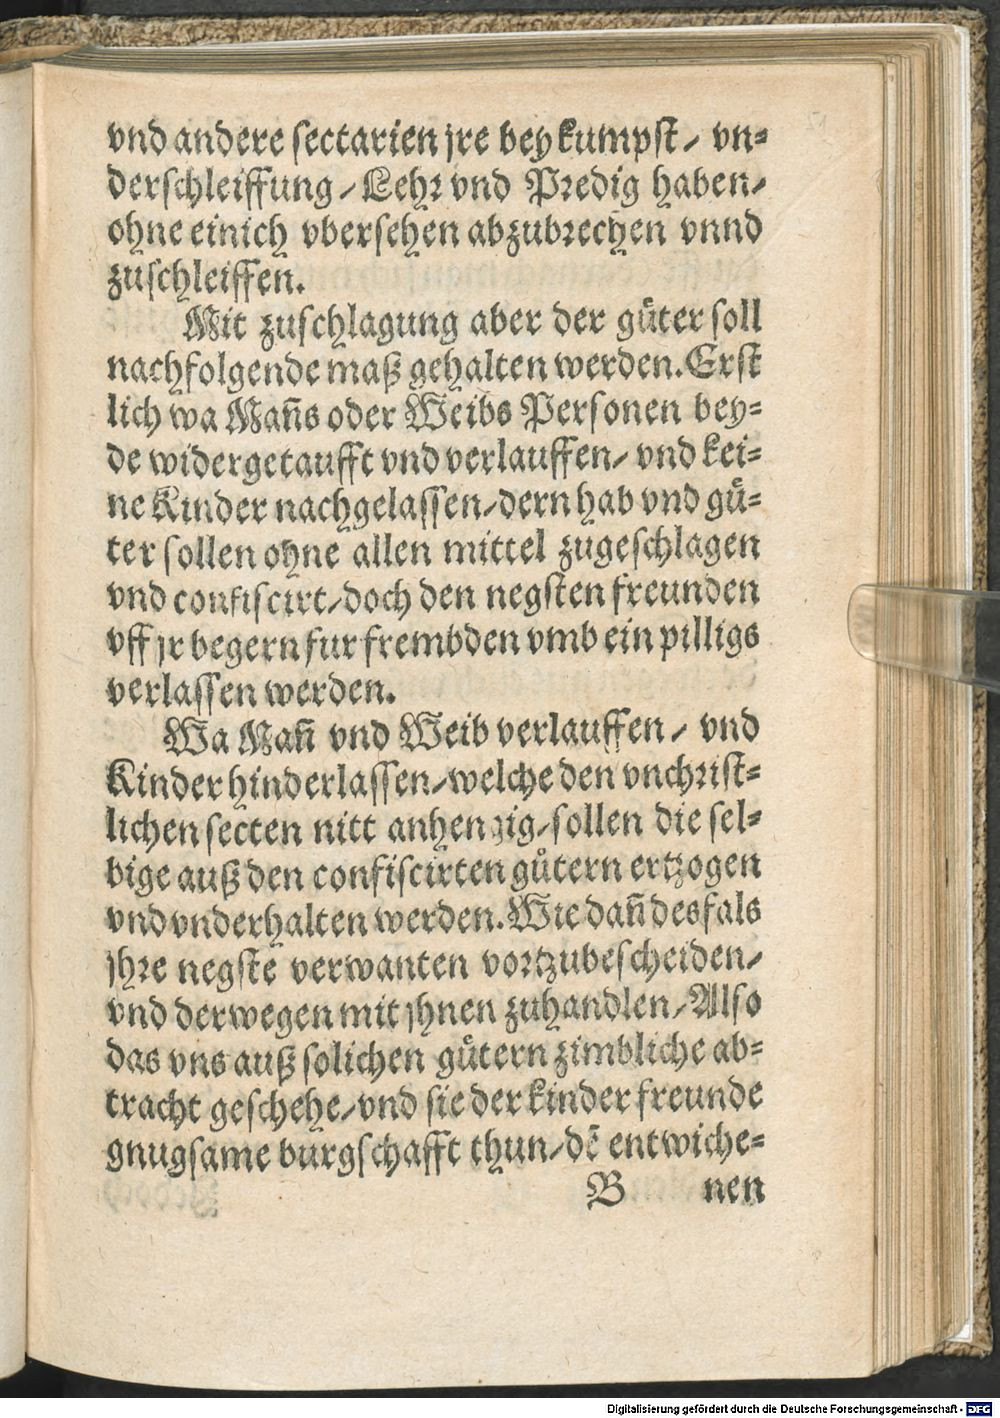 vnd andere sectarien jre beykumpst / vn=
derschleiffung / Lehr vnd Predig haben /
ohne einich vbersehen abzubrechen vnnd
zuschleiffen.
Mit zuschlagung aber der guͤter soll
nachfolgende maß gehalten werden. Erst
lich wa Mañs oder Weibs Personen bey=
de widergetaufft vnd verlauffen / vnd kei=
ne Kinder nachgelassen / dern hab vnd guͤ=
ter sollen ohne allen mittel zugeschlagen
vnd confiscirt / doch den negsten freunden
vff jr begern fur frembden vmb ein pilligs
verlassen werden.
Wa Mañ vnd Weib verlauffen / vnd
Kinder hinderlassen / welche den vnchrist=
lichen secten nitt anhengig / sollen die sel=
bige auß den confiscirten guͤtern ertzogen
vnd vnderhalten werden. Wie dañ desfals
jhre negste verwanten vortzubescheiden /
vnd derwegen mit jhnen zuhandlen / Also
das vns auß solichen guͤtern zimbliche ab=
tracht geschehe / vnd sie der kinder freunde
gnugsame burgschafft thun / dẽ entwiche=
B nen
Digitalisierung gefördert durch die Deutsche Forschungsgemeinschaft - DFG